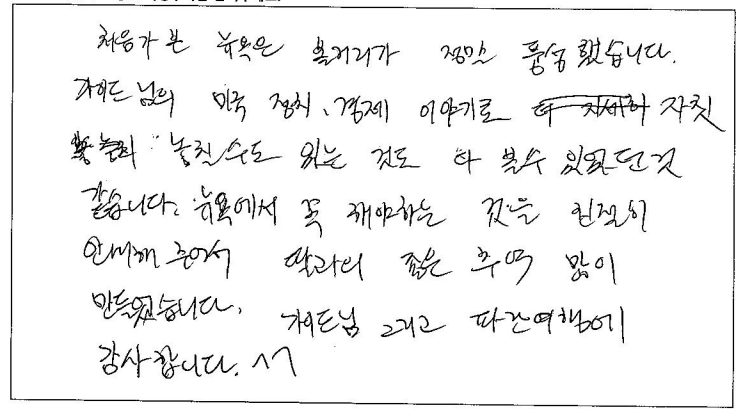 처음가 본 뉴욕은 볼거리가 정말 풍성했습니다.
가이드님의 미국 정치, 경제 이야기로 더 자세히 자칫
놓칠수도 있는 것도 다 볼수 있었던것
같습니다. 뉴욕에서 꼭 해야하는 것을 친절히
안내해 주어서 딸과의 좋은 추억 많이
만들었습니다. 가이드님 그리고 파란여행에
감사합니다. ^^